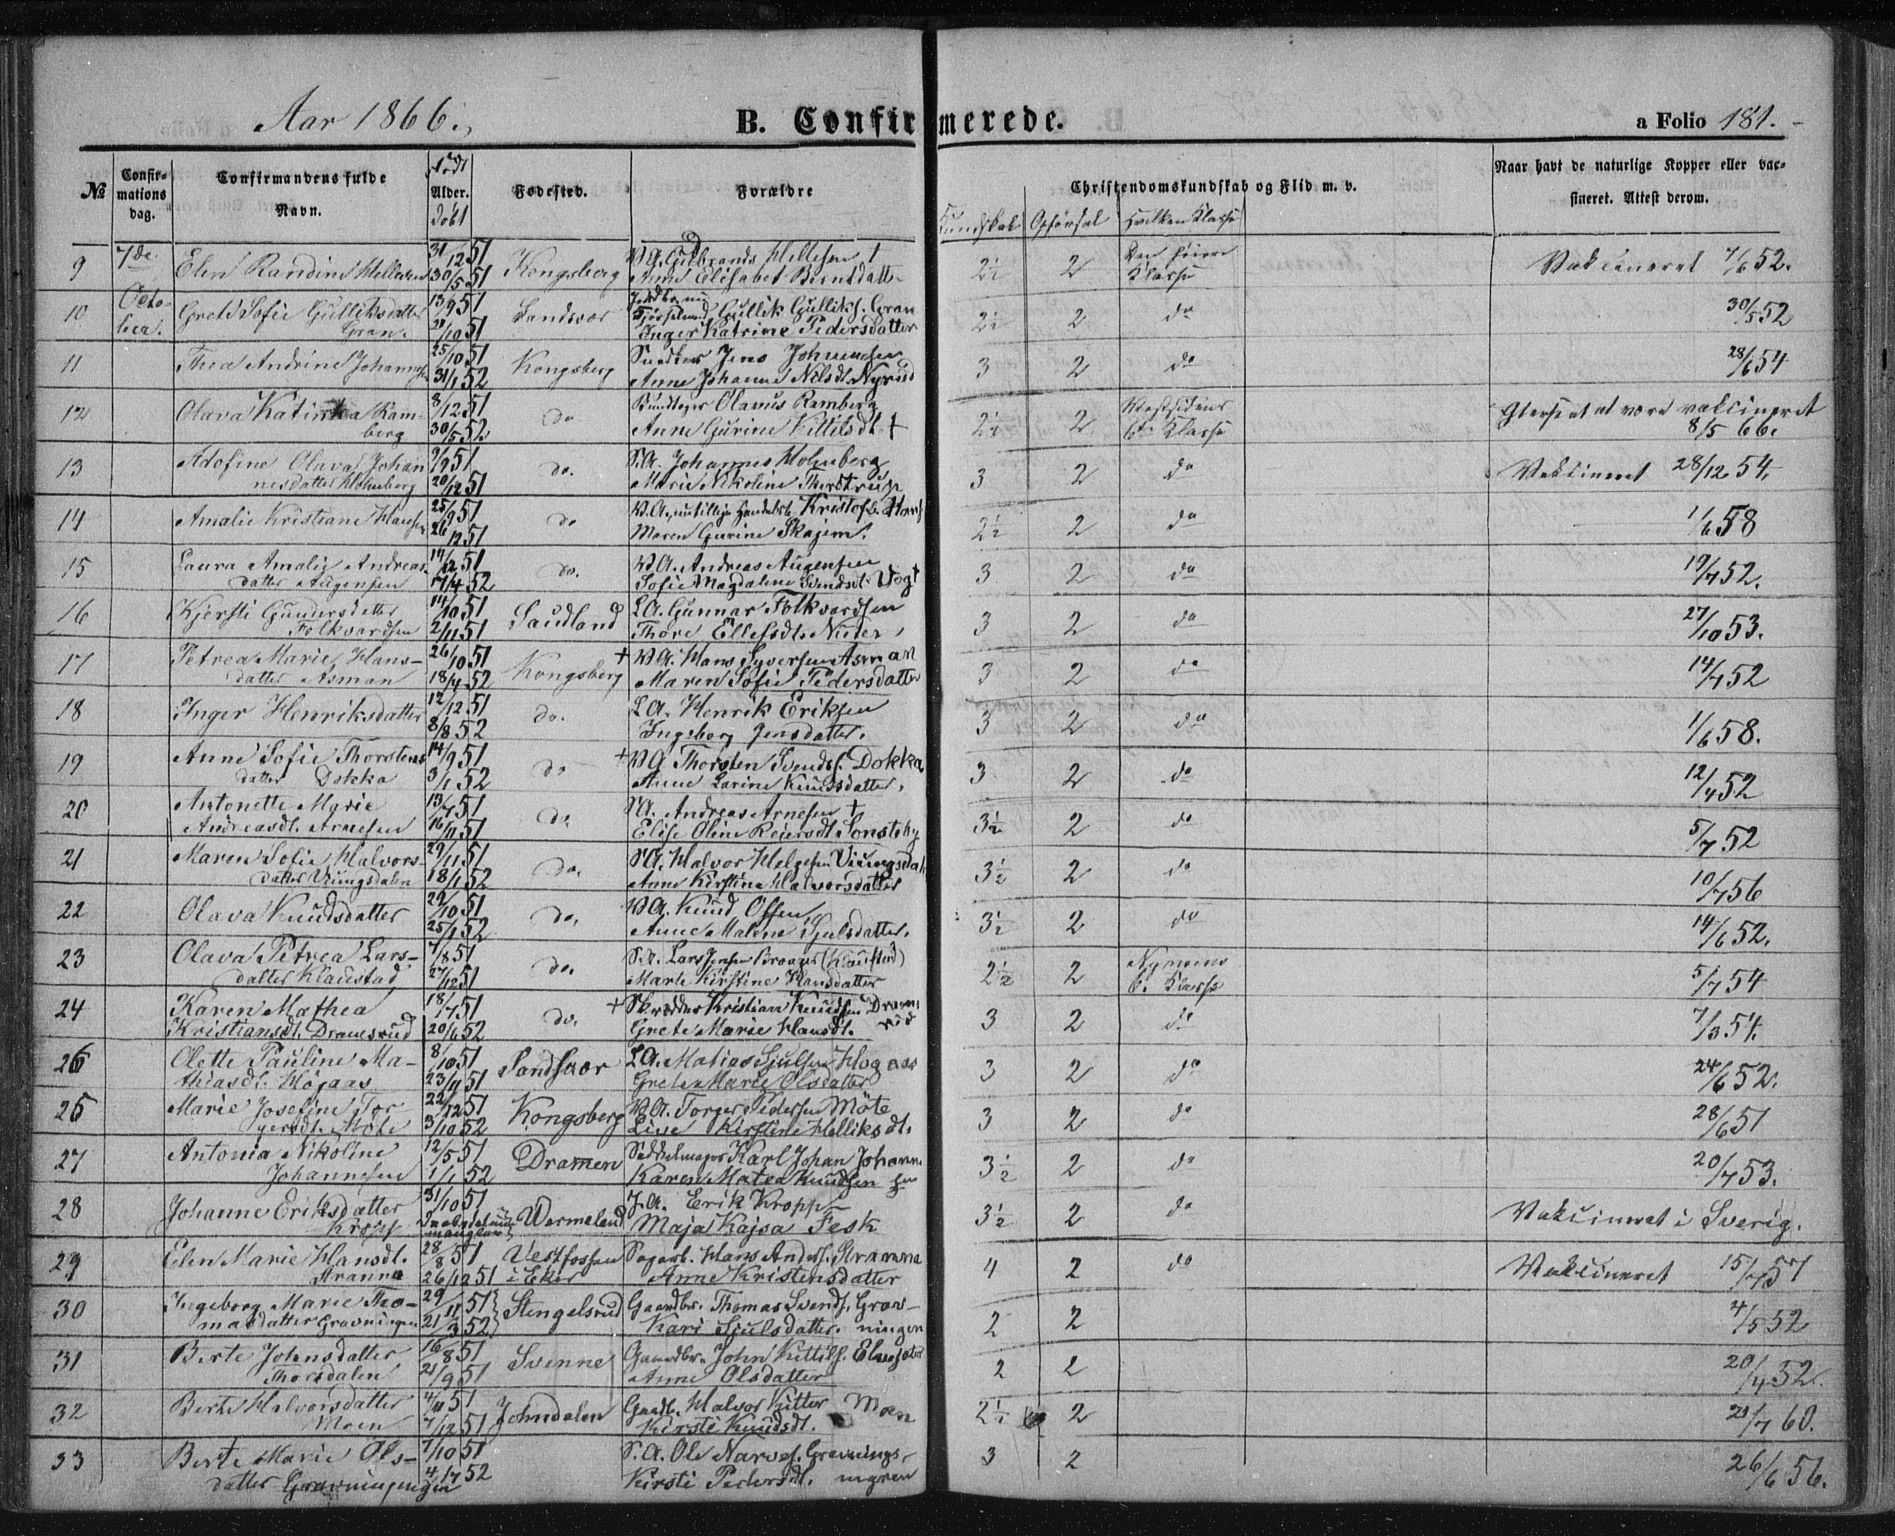 Aar 1866.
B. Confirmerede.
a Folio 181.
№ Confirmations dag. Confirmandens fulde Navn. Født Alder. Døbt Fødested. Forældre Christendomskundskab og Flid m. v. Naar havt de naturlige Kopper eller vaccineret. Attest derom.
Kundskab Opførsel Hvilken Klasse
9 7de Elen Randine Hellesen 31/12 51 Kongsberg Gulbrand Hellesen † 2½ 2 Den høiere Vakcineret 7/6 52.
30/5 51 Anne Elisabet Berntdatter Klasse
10 Octo- Grete Sofie Gulliksdatter 13/9 51 Sandsvær Gullik Gulliks. Gran 2½ 2 do 30/5 52
ber. Gran. 21/10 51 Inger Katrine Pedersdatter
11 Thea Andrine Johannesen 25/10 51 Kongsberg Snedker Jens Johannesen 3 2 do 28/6 54
31/1 52 Anne Johanne Nilsdt. Nyrud
12 Olava Katinka Ram- 8/12 51 do Olavus Ramberg 2½ 2 Vestsidens at være vakcineret
berg 30/5 52 Anne Gurine Kittilsdt. † Klasse 8/5 66.
13 Adofine Olava Johan 9/9 51 do. S.A. Johannes Holmberg 3 2 do Vakcineret 28/12 54.
nesdatter Holmberg 20/12 51 Marie Nikoline Thorstrup
14 Amalie Kristiane Hansen 25/9 51 do Kristofer Hans 2½ 2 do 1/6 58
26/12 51 Maren Gurine Skajem.
15 Laura Amalie Andreas- 14/12 51 do. Andreas Augensen 3 2 do 19/7 52.
datter Augensen 17/4 52 Sofie Magdalene Svendsdt. Vogt
16 Kjersti Gundersdatter 14/10 51 Saudland L.A. Gunnar Folkvardsen 3 2 do 27/10 53.
Folkvardsen 2/11 51 Thore Ellefsdt.
17 Petrea Marie Hans- 26/10 51 Kongsberg + Hans Syversen Asman 3 2 do 14/7 52
datter Asman 18/4 52 Maren Sofie Pedersdatter
18 Inger Henriksdatter 12/12 51 do. L.A. Henrik Eriksen 3 2 do 1/6 58.
8/8 52 Ingeborg Jensdatter.
19 Anne Sofie Thorstens 14/9 51 do + Thorsten Svends. Dokka 3 2 do 12/7 52
datter Dokka 3/1 52 Anne Larine Knudsdatter.
20 Antonette Marie 13/7 51 do Andreas Arnesen † 3½ 2 do 5/7 52
Andreasdt. Arnesen 16/11 51 Elise Oline Reiersdt. Sonsteby
21 Maren Sofie Halvors- 29/11 51 do. Halvor Helgesen Viungsdal 3½ 2 do 10/7 56
datter Viungsdalen 18/1 52 Anne Kirstine Halvorsdatter
22 Olava Knudsdatter 22/10 51 do. Knud Olsen 3½ 2 do 14/6 52.
25/1 52 Anne Malene Sjulsdatter.
23 Olava Petrea Lars- 7/8 51 do. S.A. Lars Jensen (Klaustad) 2½ 2 Nymoens 5/7 54
datter Klaustad 27/12 51 Marte Kirstine Hansdatter Klasse
24 Karen Mathea 18/7 51 do. + Skrædder Kristian Knudsen Drams 3 2 do 7/3 54.
Kristiansdt. Dramsrud 20/6 52 Grete Marie Hansdt. rud
26 Olette Pauline Ma- 8/10 51 Sandsvær L.A. Matias Sjulsen Høgaas 3 2 do 24/6 52.
thiasdt. Høgaas 23/11 51 Grete Marie Olsdatter
25 Marie Josefine Tor- 22/12 51 Kongsberg Torger Pedersen Möte 3 2 do 28/6 51
gersdt. Möte 3/10 52 Live Kirstine Helliksdt.
27 Antonia Nikoline 12/5 51 Dramen Saddelmager Karl Johan Johanne 3½ 2 do 20/7 53.
Johannesen 1/1 52 Karen Matea Knudsen sen
28 Johanne Eriksdatter 31/10 51 Wermeland J.A. Erik Kropp 3½ 2 do Vakcineret i Sverig.
Kropp mangler Maja Kajsa Fesk
29 Elen Marie Hansdt. 28/8 51 Vestfossen Hans Anders. Stranna 4 2 do Vakcineret 15/7 57
Stranna 26/12 51 i Eker Anne Kristensdatter
30 Ingeborg Marie Tho- 29/11 51 Stengelsrud Gaardbr. Thomas Svends. Grav- 2 2 4/5 52
masdatter Gravningen 21/3 52 Kari Sjulsdatter. ningen
31 Berte Johnsdatter 16/8 51 Svenne Gaardbr. John Kittils. 2 2 20/4 52.
Thorsdalen 21/9 51 Anne Olsdatter
32 Berte Halvorsdatter 4/11 51 Jondalen Gaardb. Halvor Kitter Moen 2½ 2 21/7 60.
Moen 7/12 51 Kirsti Knudsdt.
33 Berte Marie Ols- 7/10 51 S.A. Ole Narves. Gravnings- 3 2 26/6 56.
datter Gravningsmgren 4/7 52 Kirsti Pedersdt. mgren